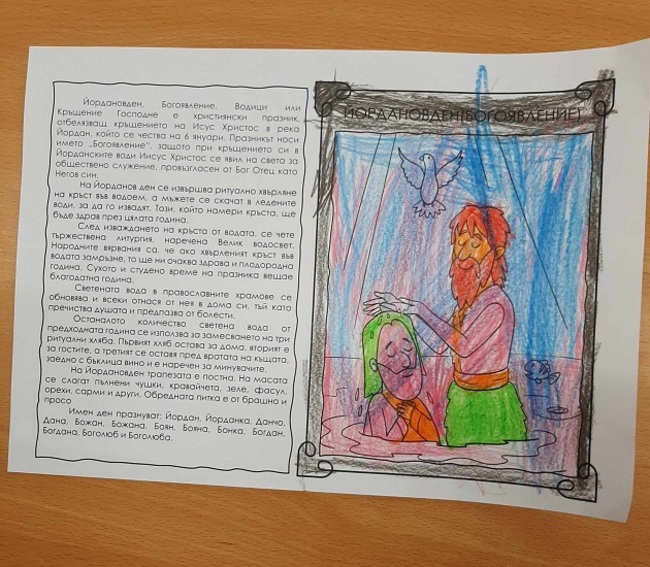 Йордановден, Богоявление, Водици или
Кръщение Господне е християнски празник,
отбелязващ кръщението на Исус Христос в река
Йордан, който се чества на 6 януари. Празникът носи
името „Богоявление", защото при кръщението си в
Йорданските води Иисус Христос се явил на света за
обществено служение, провъзгласен от Бог Отец като
Негов син.
На Йорданов ден се извършва ритуално хвърляне
на кръст във водоем, а мъжете се скачат в ледените
води, за да го извадят. Този, който намери кръста, ще
бъде здрав през цялата година.
След изваждането на кръста от водата, се чете
тържествена литургия, наречена Велик водосвет.
Народните вярвания са, че ако хвърленият кръст във
водата замръзне, то ще ни очаква здрава и плодородна
година. Сухото и студено време на празника вещае
благодатна година.
Светената вода в православните храмове се
обновява и всеки отнася от нея в дома си, тъй като
пречиства душата и предпазва от болести.
Останалото количество светена вода от
предходната година се използва за замесването на три
ритуални хляба. Първият хляб остава за дома, вторият е
за гостите, а третият се оставя пред вратата на къщата,
заедно с бъклица вино и е наречен за минувачите.
На Йордановден трапезата е постна. На масата
се слагат пълнени чушки, кравайчета, зеле, фасул,
орехи, сарми и други. Обредната питка е от брашно и
просо
Имен ден празнуват: Йордан, Йорданка, Данчо,
Дана, Божан, Божана, Боян, Бояна, Бонка, Богдан,
Богдана, Боголюб и Боголюба.
ЙОРДАНОВДЕН(БОГОЯВЛЕНИЕ)